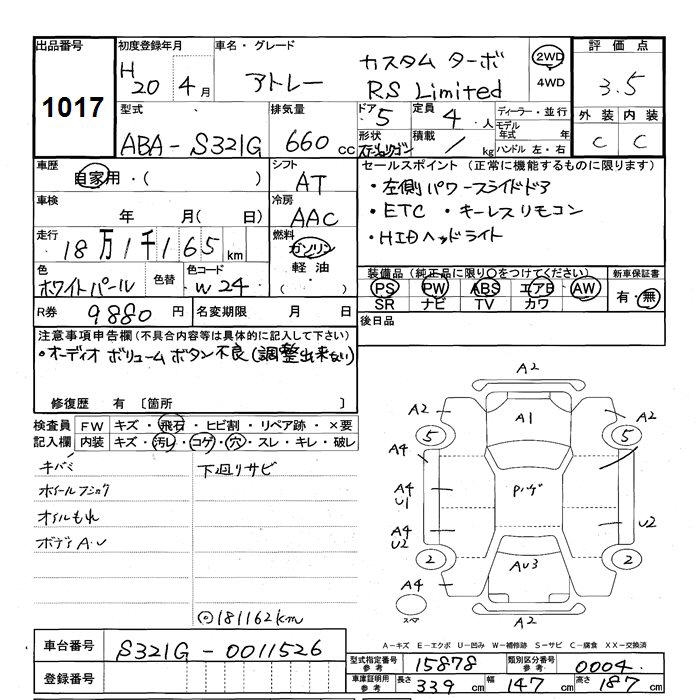 出品番号
1017
初度登録年月
H20 4月
車名・グレード
アトレー
カスタム ターボ
RS Limited
2WD
4WD
評価点
3.5
外装 内装
C C
型式
ABA-S321G
排気量
660 cc
ドア
5
定員
4 人
ディーラー・並行
モデル年式 年
ハンドル 左・右
形状
積載
/ kg
車歴
自家用・( )
シフト
AT
車検
年 月( 日)
冷房
AAC
走行
18万1千165km
燃料
ガソリン
軽油
( )
色
ホワイトパール
色替
色コード
W24
R券 9880円
名変期限 月 日
セールスポイント (正常に機能するものに限ります)
・左側パワースライドドア
・ETC ・キーレスリモコン
・HIDヘッドライト
装備品 (純正品に限り○をつけてください)
PS PW ABS エアB AW
SR ナビ TV カワ
新車保証書
有・無
後日品
注意事項申告欄 (不具合内容等は具体的に記入して下さい)
・オーディオ ボリュームボタン不良(調整出来ない)
修復歴 有 〔箇所 〕
検査員記入欄
FW キズ・飛石・ヒビ割・リペア跡・×要
内装 キズ・汚レ・コゲ・穴・スレ・キレ・破レ
キバミ
下廻リサビ
オイルもれ
ボディA・U
◎181162km
A2
A2 A1 A2
5 5
A4
A4
U1
A4
U2
U2
2 2
AU3
A4
スペア
A2
A-キズ E-エクボ U-凹み W-補修跡 S-サビ C-腐食 XX-交換済
車台番号 S321G-0011526
登録番号
型式指定番号 参考 15878
類別区分番号 参考 0004
車庫証明用 参考 長さ 339 cm 幅 147 cm 高さ 187 cm